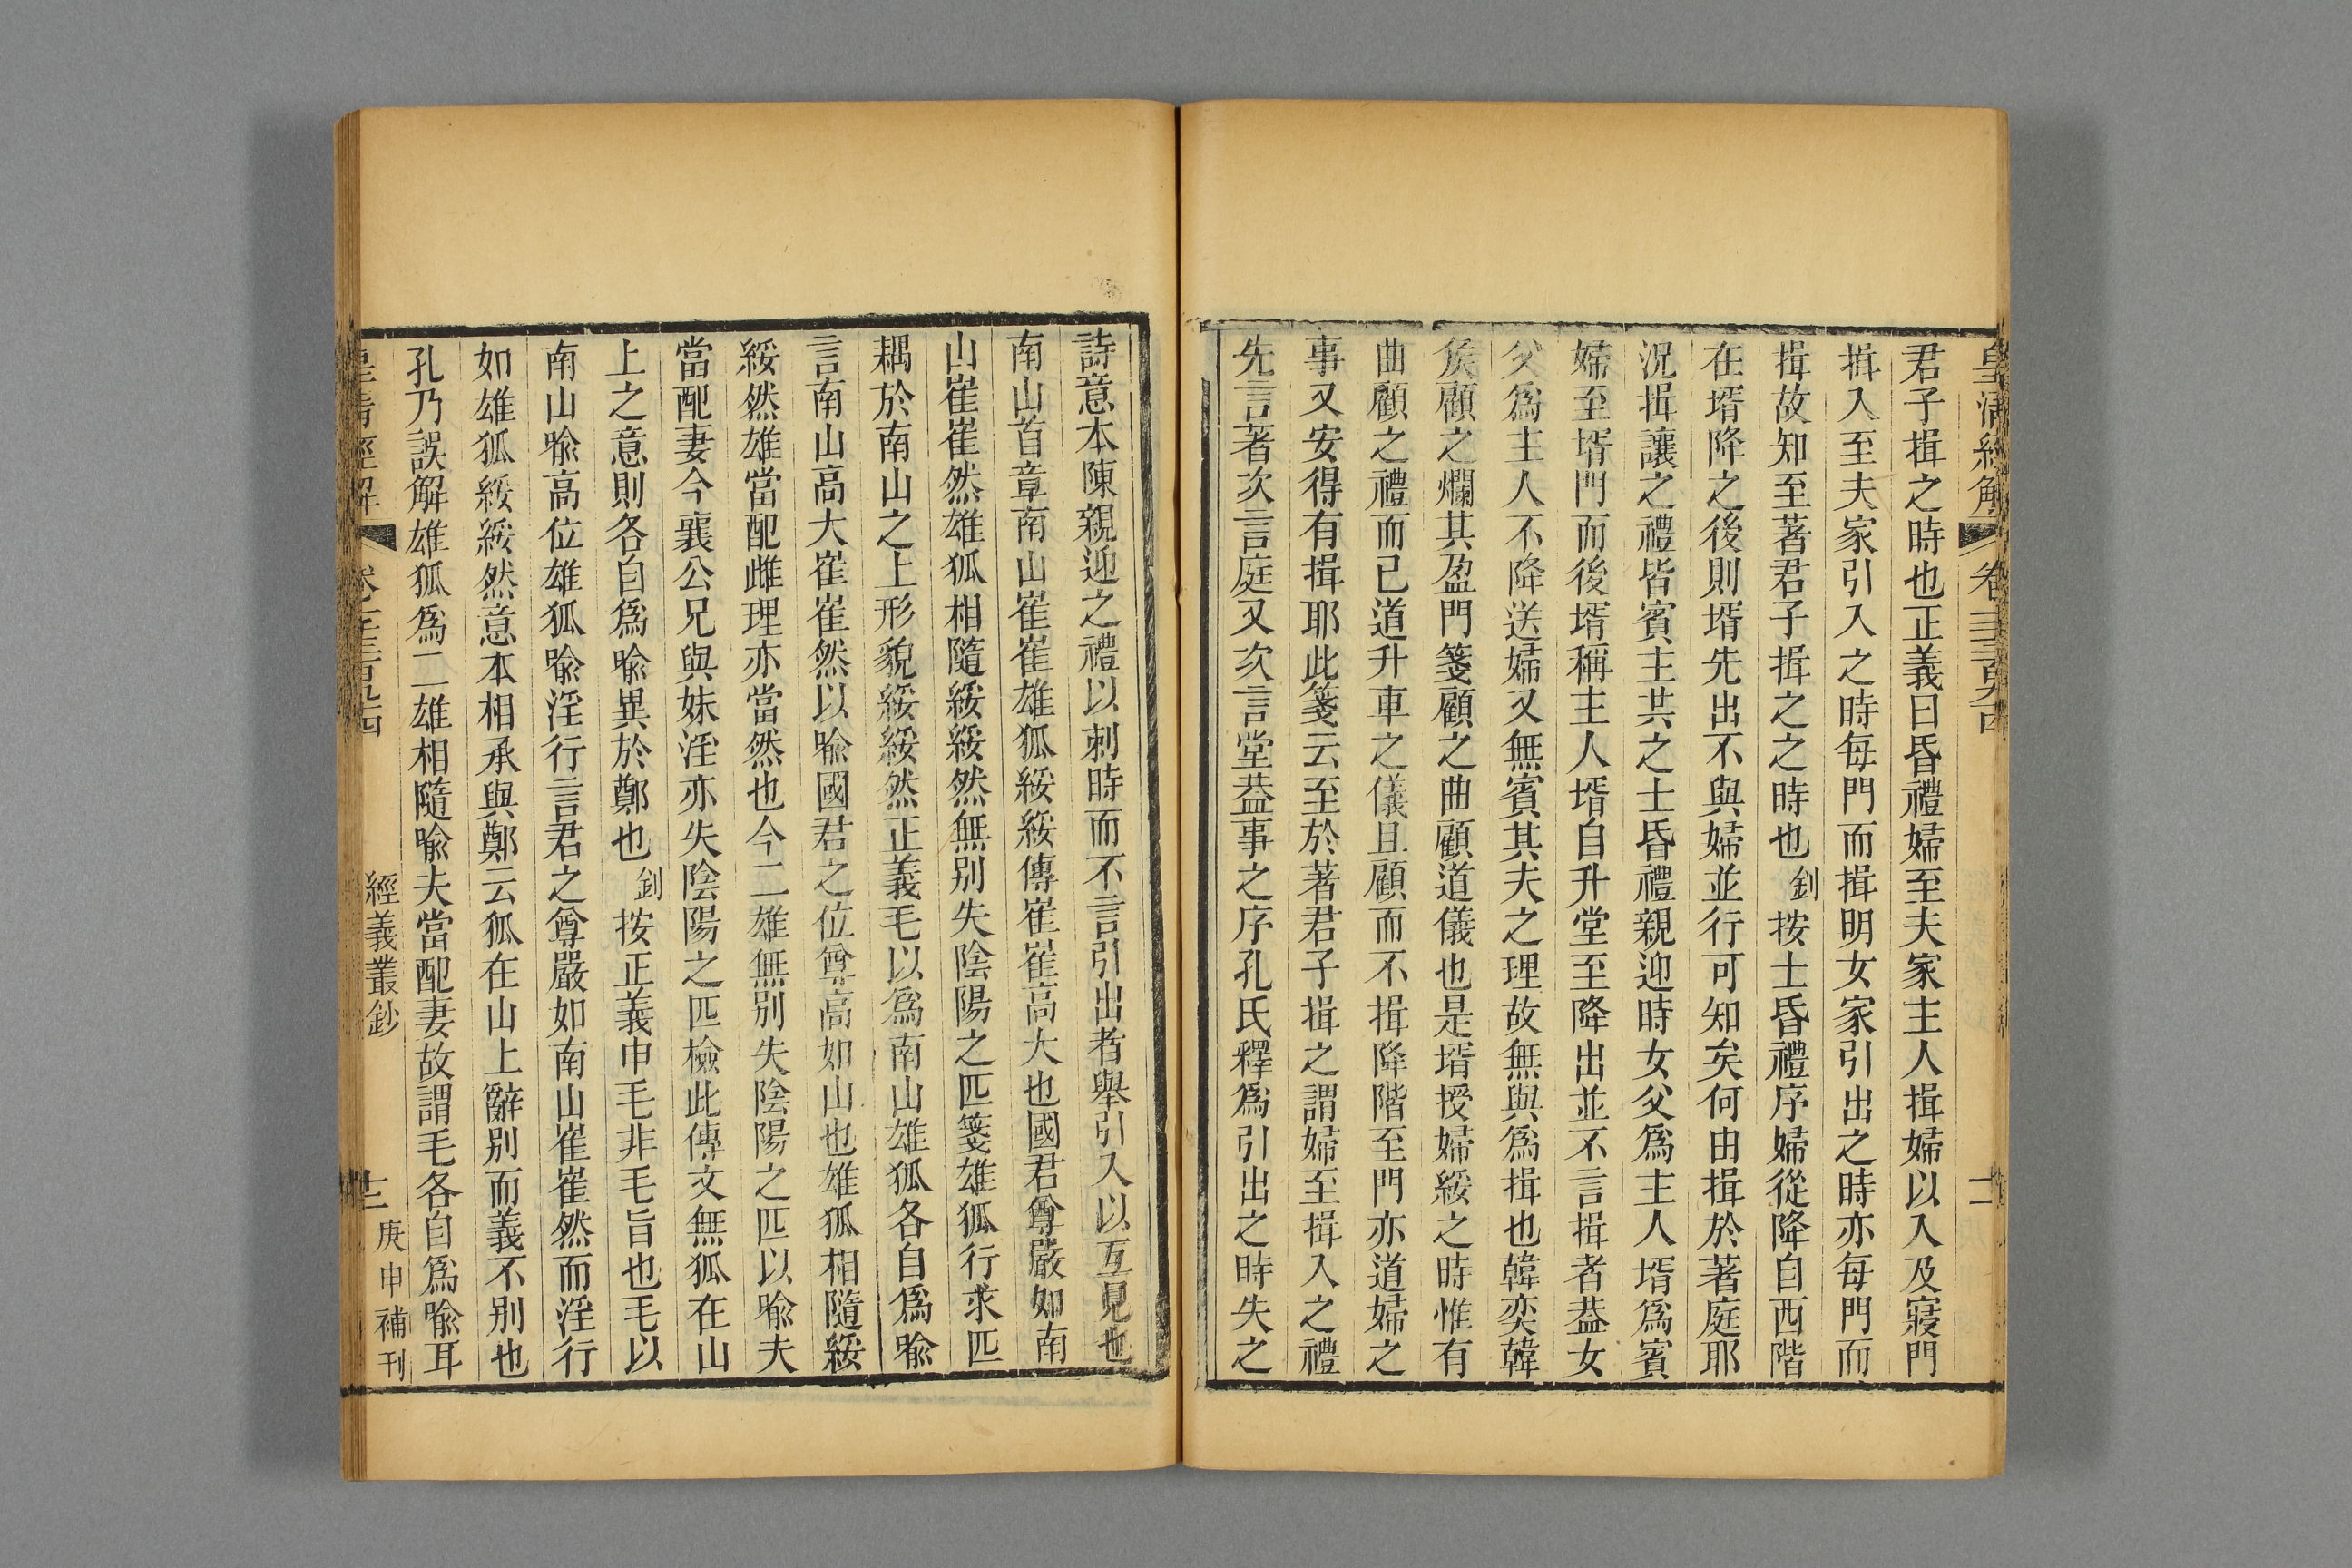 皇清經解 卷
君子揖之時也正義曰昏禮婦至夫家主人揖婦以入及寢門
揖入至夫家引入之時每門而揖明女家引出之時亦每門而
揖故知至著君子揖之之時也釗按士昏禮序婦從降自西階
在壻降之後則壻先出不與婦並行可知矣何由揖於著庭耶
況揖讓之禮皆賓主共之士昏禮親迎時女父爲主人壻爲賓
婦至壻門而後壻稱主人壻自升堂至降出並不言揖者葢女
父爲主人不降送婦又無賓其夫之理故無與爲揖也韓奕韓
侯顧之爛其盈門箋顧之曲顧道儀也是壻授婦綏之時惟有
曲顧之禮而已道升車之儀且顧而不揖降階至門亦道婦之
事又安得有揖耶此箋云至於著君子揖之謂婦至揖入之禮
先言著次言庭又次言堂葢事之序孔氏釋爲引出之時失之
詩意本陳親迎之禮以刺時而不言引出者舉引入以互見也
南山首章南山崔崔雄狐綏綏傳崔崔高大也國君尊嚴如南
山崔崔然雄狐相隨綏綏然無别失陰陽之匹箋雄狐行求匹
耦於南山之上形貌綏綏然正義毛以爲南山雄狐各自爲喻
言南山高大崔崔然以喻國君之位尊高如山也雄狐相隨綏
綏然雄當配雌理亦當然也今二雄無别失陰陽之匹以喻夫
當配妻今襄公兄與妹淫亦失陰陽之匹檢此傳文無狐在山
上之意則各自爲喻異於鄭也釗按正義申毛非毛旨也毛以
南山喻高位雄狐喻淫行言君之尊嚴如南山崔崔然而淫行
如雄狐綏綏然意本相承與鄭云狐在山上辭别而義不别也
孔乃誤解雄狐爲二雄相隨喻夫當配妻故謂毛各自爲喻耳
皇清經解 經義叢鈔 庚申補刊